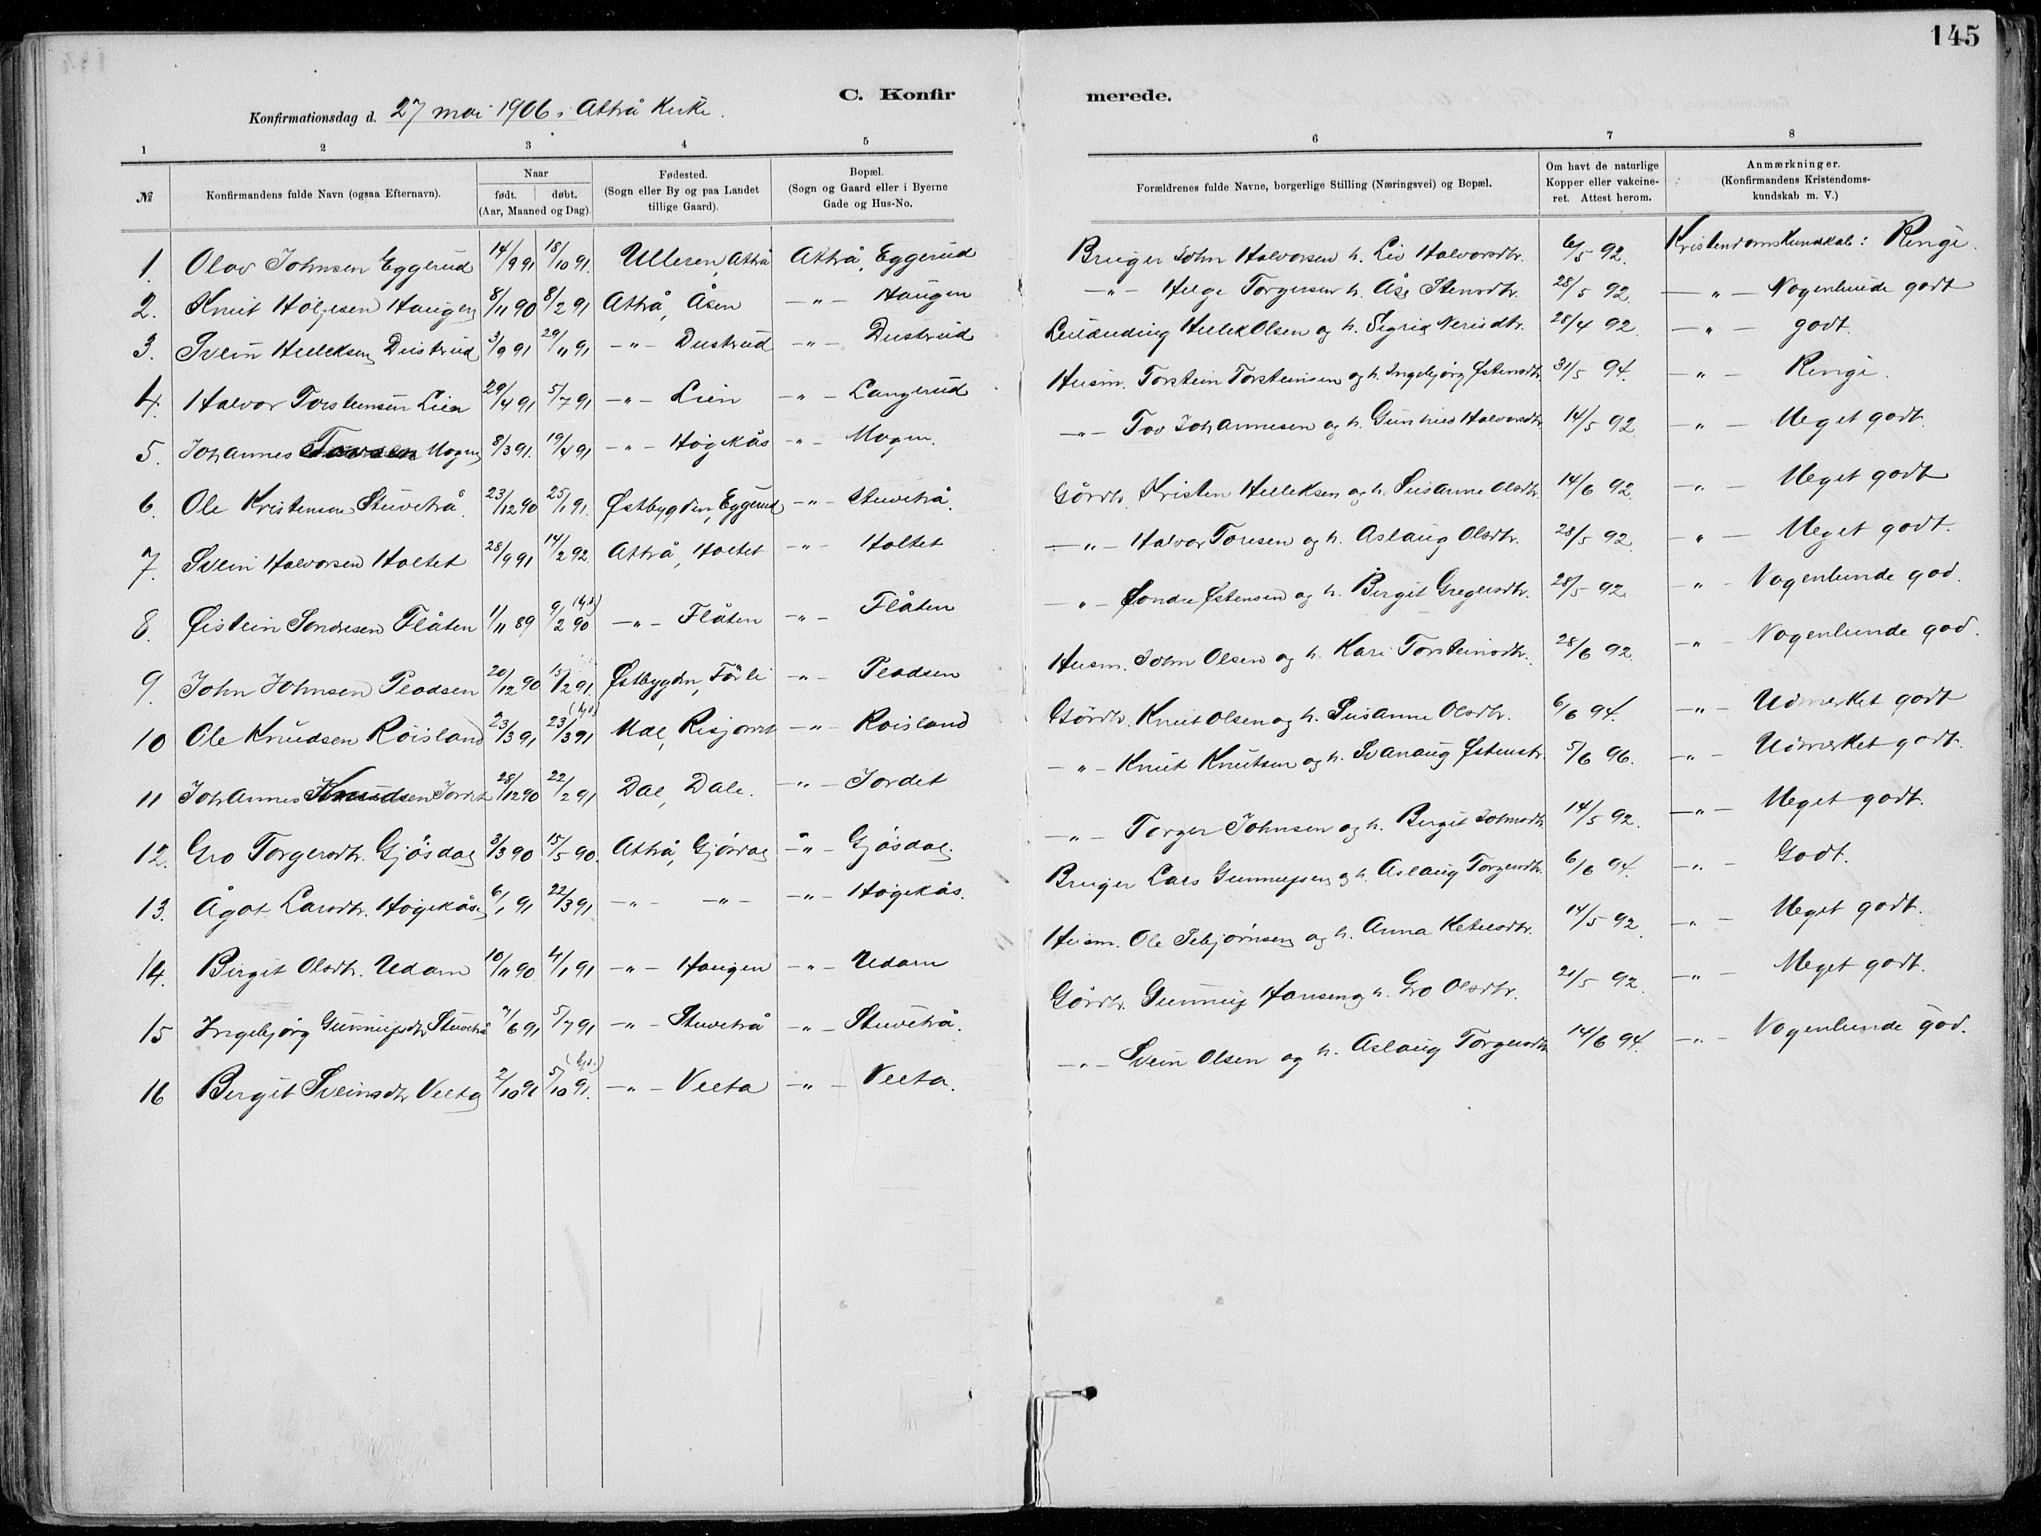 145
C. Konfirmerede.
Konfirmationsdag d. 27 mai 1906 i Attrå Kirke.
1 2 3 4 5 6 7 8
№ Konfirmandens fulde Navn (ogsaa Efternavn). Naar født. døbt. (Aar, Maaned og Dag). Fødested. (Sogn eller By og paa Landet tillige Gaard). Bopæl. (Sogn og Gaard eller i Byerne Gade og Hus-No. Forældrenes fulde Navne, borgerlige Stilling (Næringsvei) og Bopæl. Om havt de naturlige Kopper eller vakcineret. Attest herom. Anmærkninger. (Konfirmandens Kristendomskundskab m. V.)
1. Olav Johnsen Eggerud 14/9 91 18/10 91. Attrå Attrå, Eggerud Bruger John Halvorsen h. Liv Halvorsdtr. 6/5 92. Kristendomskundskab: Ringe.
2. Knut Helgesen Haugen 8/11 90 8/2 91 Attrå, Åsen -"- Haugen -"- Helge Torgersen h. Åse Stensdtr. 28/5 92. -"- Nogenlunde godt
3. Svein Halleksen Dustrud 3/9 91 29/11 91 -"- Dustrud -"- Dustrud Olsen og h. Sigrid 28/4 92. -"- godt.
4. Halvor Torsteinsen Lien 29/4 91 5/7 91 -"- Lien -"- Langerud Husm. Torstein Torsteinsen og h. Ingebjørg Østensdtr. 31/5 94. -"- Ringe.
5. Johannes Tovsen Mogen 8/3 91. 19/4 91 -"- Høgekås -"- Mogen. -"- Tov Johannesen og h. Gunhild Halvorsdtr. 14/5 92. -"- Meget godt.
6. Ole Kristensen Stuvetrå. 23/12 90 25/1 91. Østbygden, Eggerud -"- Stuvetrå. Gårdbr. Kristen Helleksen og h. Susanne Olsdtr. 14/6 92. -"- Meget godt
7. Svein Halvorsen Holtet 28/9 91 14/2 92. Attrå, Holtet -"- Holtet -"- Halvor Toresen og h. Aslaug Olsdtr. 28/5 92. -"- Meget godt.
8. Øistein Sondresen Flåten 1/11 89 9/2 90 -"- Flåten -"- Flåten -"- Sondre Østensen og h. Birgit Gregersdtr. 28/5 92. -"- Nogenlunde god.
9. John Johnsen Pladsen 20/12 90 15/2 91. Østbygden, Førli -"- Pladsen Husm. John Olsen og h. Kari Torsteinsdtr. 28/6 92. -"- Nogenlunde god.
10 Ole Knudsen Roisland 23/3 91 23/3 91 Mæl, -"- Roisland Gårdbr. Knut Olsen og h. Susanne Olsdtr. 6/6 94. -"- Udmerket godt
11 Johannes Knudsen Jordet 28/12 90 22/2 91 Dal, Dale. -"- Jordet -"- Knut Knutsen og h. Svanaug Østensdtr. 5/6 96. -"- Udmerket godt.
12. Gro Torgersdtr. Gjøsdal 3/3 90 15/5 90. Attrå, Gjøsdal -"- Gjøsdal. -"- Torger Johnsen og h. Birgit Johnsdtr. 14/5 92. -"- Meget godt.
13. Ågot Larsdtr. Høgekås 6/1 91 22/3 91. -"- -"- -"- Høgekås. Bruger Lars Gunnulfsen og h. Aslaug Torgersdtr. 6/6 94. -"- Godt.
14. Birgit Olsdtr. Udam 10/11 90 4/1 91 -"- Haugen -"- Udam Husm. Ole og h. Anna Ketilsdtr. 14/5 92. -"- Meget godt.
15 Ingebjørg Gunnulfsdtr Stuvetrå 7/6 91 5/7 91 -"- Stuvetrå -"- Stuvetrå. Gårdbr. Gunnulf Hansen og h. Gro Olsdtr. 21/5 92. -"- Meget godt.
16 Birgit Sveinsdtr Veeta 2/10 91 5/10 91. -"- Veeta -"- Veeta. -"- Svein Olsen og h. Aslaug Torgersdtr 14/6 94. -"- Nogenlunde god.